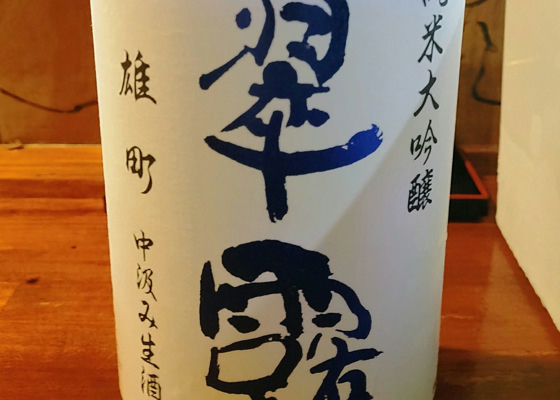 純米大吟醸
翠露
雄町
中汲み生酒